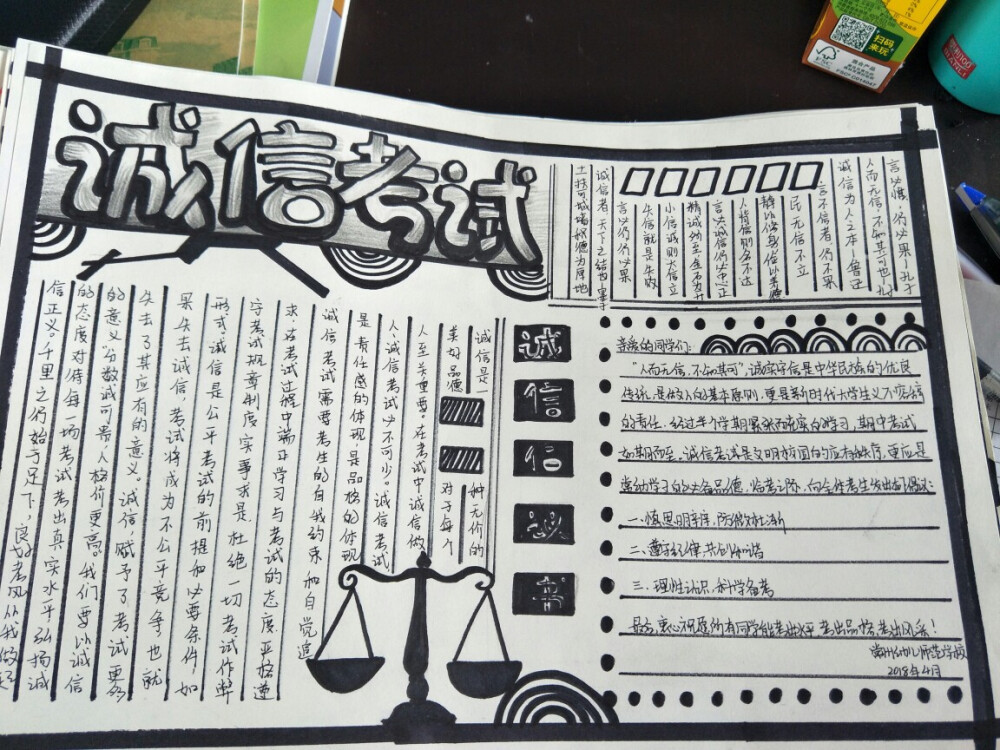 诚信考试
言必慎，行必果—孔子
人而无信，不知其可也—孔子
诚信为人之本—鲁迅
言不信者，行不果
民无信不立
静以修身俭以养德
人背信则名不达
言必诚信行必中正
精诚所至金石为开
小信诚则大信立
失信就是失败
言必行行必果
诚信者，天下之结也—墨子
土扶可城墙积德为厚地
诚信是一种无价的
美好品德对于每个
人至关重要。在考试中诚信做
人诚信考试必不可少。诚信考试
是责任感的体现，是品格的体现
诚信考试需要考生的自我约束和自觉追
求在考试过程中端正学习与考试的态度严格遵
守考试规章制度实事求是，杜绝一切考试作弊
形式。诚信是公平考试的前提和必要条件，如
果失去诚信，考试将成为不公平竞争也就
失去了其应有的意义。诚信，赋予了考试更多
的意义分数诚可贵，人格价更高。我们要以诚信
的态度对待每一场考试考出真实水平弘扬诚
信正义。千里之行始于足下，良好考风从我做起
诚
信
倡
议
书
亲爱的同学们：
"人而无信，不知其可"，诚实守信是中华民族的优良
传统，是做人的基本原则，更是新时代大学生义不容辞
的责任，经过半个学期紧张而充实的学习，期中考试
如期而至。诚信考试是文明校园的应有秩序，更应是
莘莘学子的必备品德，临考之际，向全体考生发出如下倡议：
一、慎思明辨，防微杜渐
二、遵守纪律，共创和谐
三、理性认识，科学备考
最后，衷心祝愿所有同学能考出水平，考出品格，考出风采！
常州幼儿师范学校
2018年4月
扫码
来玩
FSC
混合产品